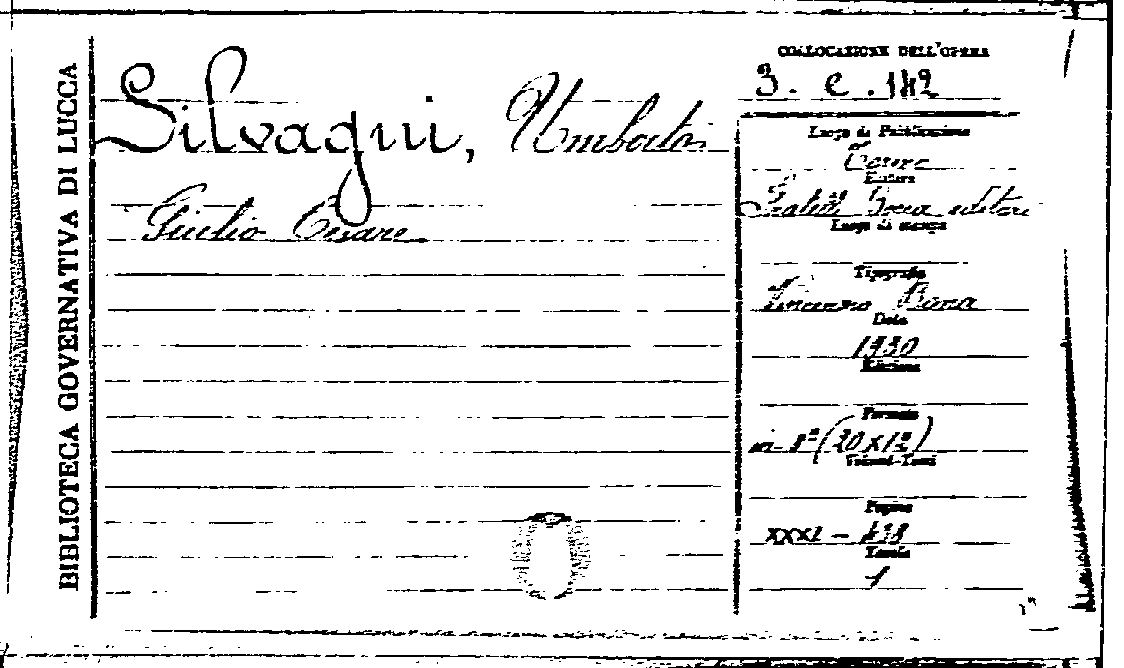 BIBLIOTECA GOVERNATIVA DI LUCCA
Silvagni, Umberto
Giulio Cesare
COLLOCAZIONE DELL'OPERA
3. C. 142
Luogo di Pubblicazione
Editore
Fratelli Bocca editori
Luogo di stampa
Tipografia
Vincenzo Bona
Data
1930
Edizione
Formato
in-8º (20x12)
Volumi-Tomi
Pagine
XXXI -
Tavole
1